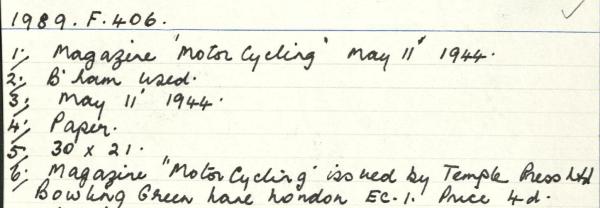 1989. F. 406.
1. Magazine "Motor Cycling" May 11" 1944.
2. B'ham used.
3. May 11" 1944.
4. Paper.
5. 30 x 21.
6. Magazine "Motor Cycling" issued by Temple Press Ltd
Bowling Green Lane London EC.1. Price 4d.